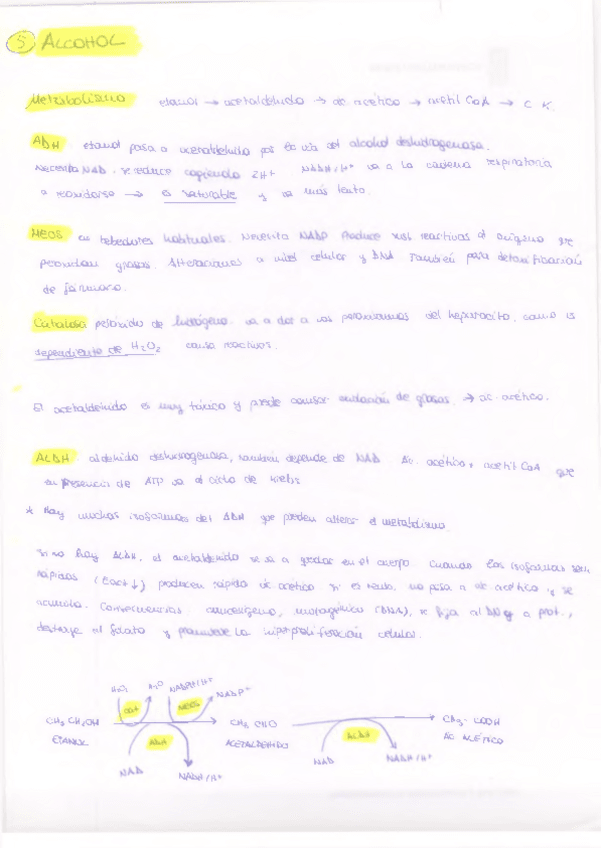 5 ALCOHOL
Metabolismo etanol → acetaldehido → ac acético → acetil CoA → C K.
ADH etanol pasa a acetaldehido por la vía del alcohol deshidrogenasa.
Necesita NAD, se reduce cogiendo 2H+ NADH/H+ va a la cadena respiratoria
a reoxidarse → es saturable y va más lento.
MEOS en bebedores habituales. Necesita NADP Produce reactivas d oxígeno que
peroxidan grasas. Alteraciones a nivel celular y DNA también para detoxificación
de fármaco.
Catalasa peróxido de hidrógeno. va a dar a los peroxisomas del hepatocito, como es
dependiente de H2O2 causa reactivos.
El acetaldehido es muy tóxico y puede causar oxidación de grasas → ac. acético.
ALDH aldehido deshidrogenasa, también depende de NAD Ac. acético + acetil CoA que
en presencia de ATP va al ciclo de Krebs
* Hay muchas isoformas del ADH que pueden alterar el metabolismo.
Si no hay ALDH, el acetaldehido se va a quedar en el cuerpo Cuando las isoformas son
rápidas ( ↓) producen rápido ac acetico si es lento, no pasa a ac acético y se
acumula. Consecuencias cancerígeno, mutagénico (DNA), se fija al DNA y a prot.,
destruye el folato y promueve la hiperproliferación celular.
H2O2 H2O NADPH/H+ NADP+
Cat MEOS
CH3 CH2OH CH3 CHO CH3-COOH
ETANOL ADH ACETALDEHIDO ALDH AC ACÉTICO
NAD NADH/H+ NAD NADH/H+